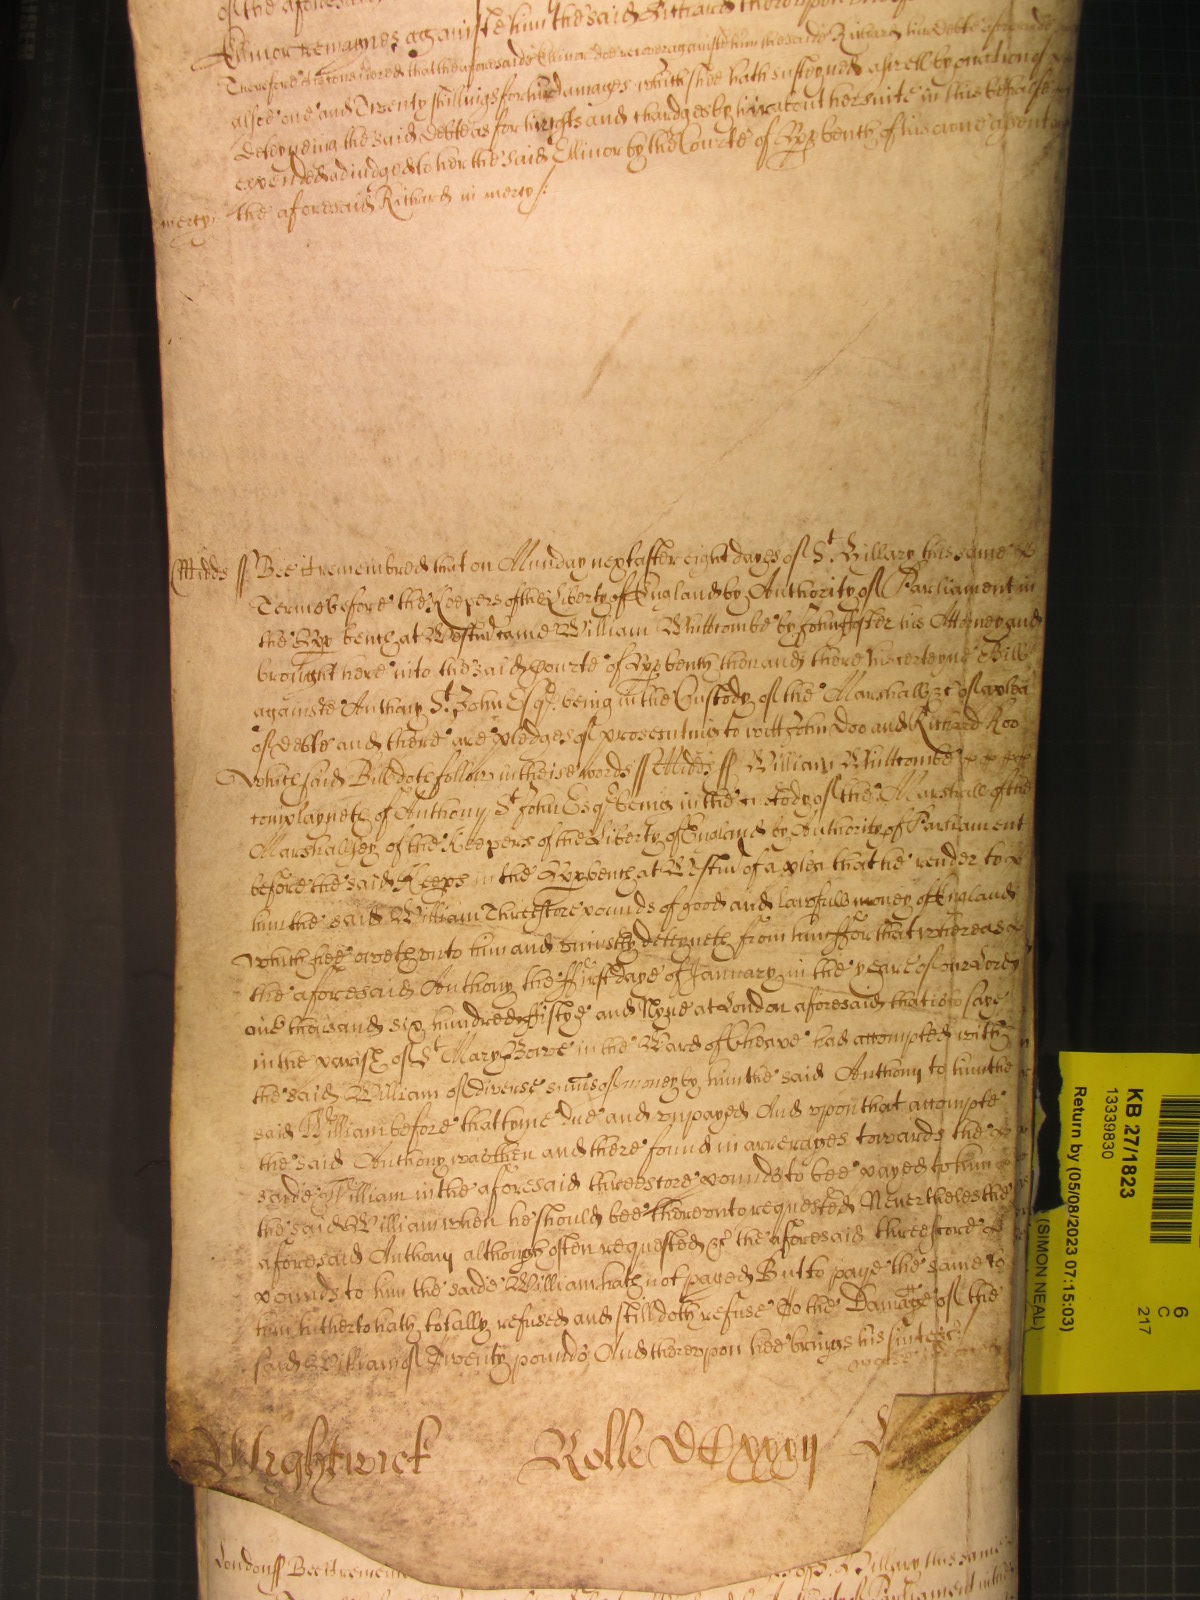 of the aforesaid
Ellinor remaynes againste him the said Richard
Therefore it is considered that the aforesaide Ellinor doe recover againste him the saide Richard her debte aforesaide
alsoe one and Twenty shillings for her damages which shee hath susteyned aswell by occasion of
deteyneing the said debte as for her costs and chardges by her about her suite in this behalfe
expended adiudged to her the said Ellinor by the Courte of Upp bench of his owne assent And
mercy the aforesaid Richard in mercy /:
Midds ss Bee it remembred that on Munday next after eight dayes of St Hillary this same
Terme before the Keepers of the Liberty of England by Authority of Parliament in
the Upp bench at Westmr came William Whittcombe by his Attorney and
brought here into the said Courte of Upp bench then and there his certeyne Bill
againste Anthony St John Esqr. being in the Custody of the Marshall &c of a plea
of debte and there are pledges of prosecuting to witt John Doo and Richard Roo
Which said Bill doth follow in theise words ss Midds ss William Whittcombe
complayneth of Anthony St John Esqr being in the Custody of the Marshall of the
Marshallsey of the Keepers of the Liberty of England by Authority of Parliament
before the said Keeps in the Upp bench at Westmr of a plea that he render to
him the said William Threescore pounds of good and lawfull money of England
which hee oweth unto him and uniustly deteyneth from him ffor that whereas
the aforesaid Anthony the ffirst daye of January in the yeare of our Lord
one thousand six hundred ffiftye and Nyne at London aforesaid that is to saye
in the parish of St Mary Bowe in the Ward of Cheape had accompted with
the said William of diverse sumes of money by him the said Anthony to him the
said William before that tyme due and unpayed And upon that accompte
the said Anthony was then and there found in arrerages towards the
saide William in the aforesaid threescore pounds to bee payed to him
the said William when he should bee thereunto requested Neverthelesse the
aforesaid Anthony although often requested &c the aforesaid threescore
pounds to him the saide William hath not payed But to paye the same to
him hitherto hath totally refused and still doth refuse To the Damage of the
said William of Twenty pounds And thereupon hee brings his suite &c:
Wightwick Rolle DCxxxij
London ss Bee it rememb Hillary this same
Parliament in the
KB 27/1823
13339830
Return by (05/08/2023 07:15:03)
(SIMON NEAL)
6
C
217